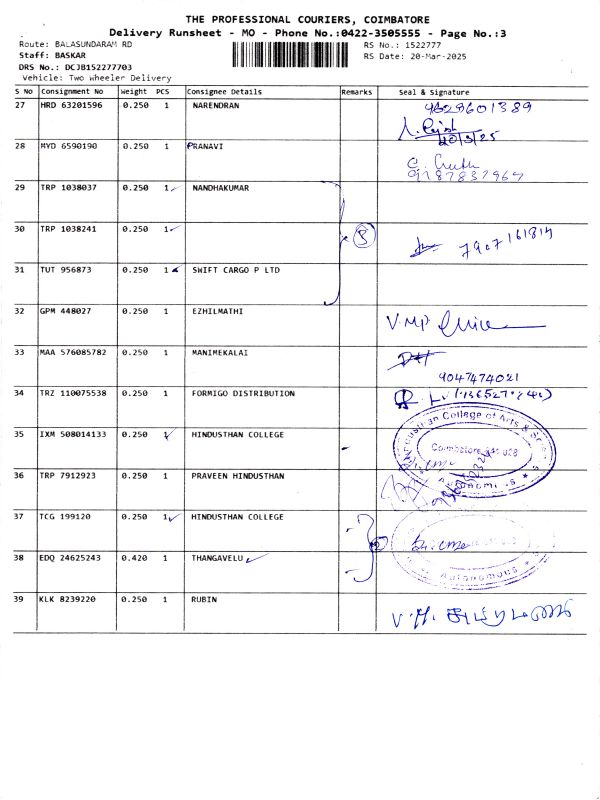 THE PROFESSIONAL COURIERS, COIMBATORE
Delivery Runsheet - MO - Phone No.:0422-3505555 - Page No.:3
Route: BALASUNDARAM RD
RS No.: 1522777
Staff: BASKAR
RS Date: 20-Mar-2025
DRS No.: DCJB152277703
Vehicle: Two Wheeler Delivery
S No Consignment No Weight PCS Consignee Details Remarks Seal & Signature
27 HRD 63201596 0.250 1 NARENDRAN
20/3/25
28 MYD 6590190 0.250 1 PRANAVI
9787837967
29 TRP 1038037 0.250 1 NANDHAKUMAR
30 TRP 1038241 0.250 1
31 TUT 956873 0.250 1 SWIFT CARGO P LTD
32 GPM 448027 0.250 1 EZHILMATHI
V.MP
33 MAA 576085782 0.250 1 MANIMEKALAI
9047474021
34 TRZ 110075538 0.250 1 FORMIGO DISTRIBUTION
35 IXM 508014133 0.250 1 HINDUSTHAN COLLEGE
College of Arts &
Coimbatore 028
36 TRP 7912923 0.250 1 PRAVEEN HINDUSTHAN
37 TCG 199120 0.250 1 HINDUSTHAN COLLEGE
38 EDQ 24625243 0.420 1 THANGAVELU
Autonomous
39 KLK 8239220 0.250 1 RUBIN